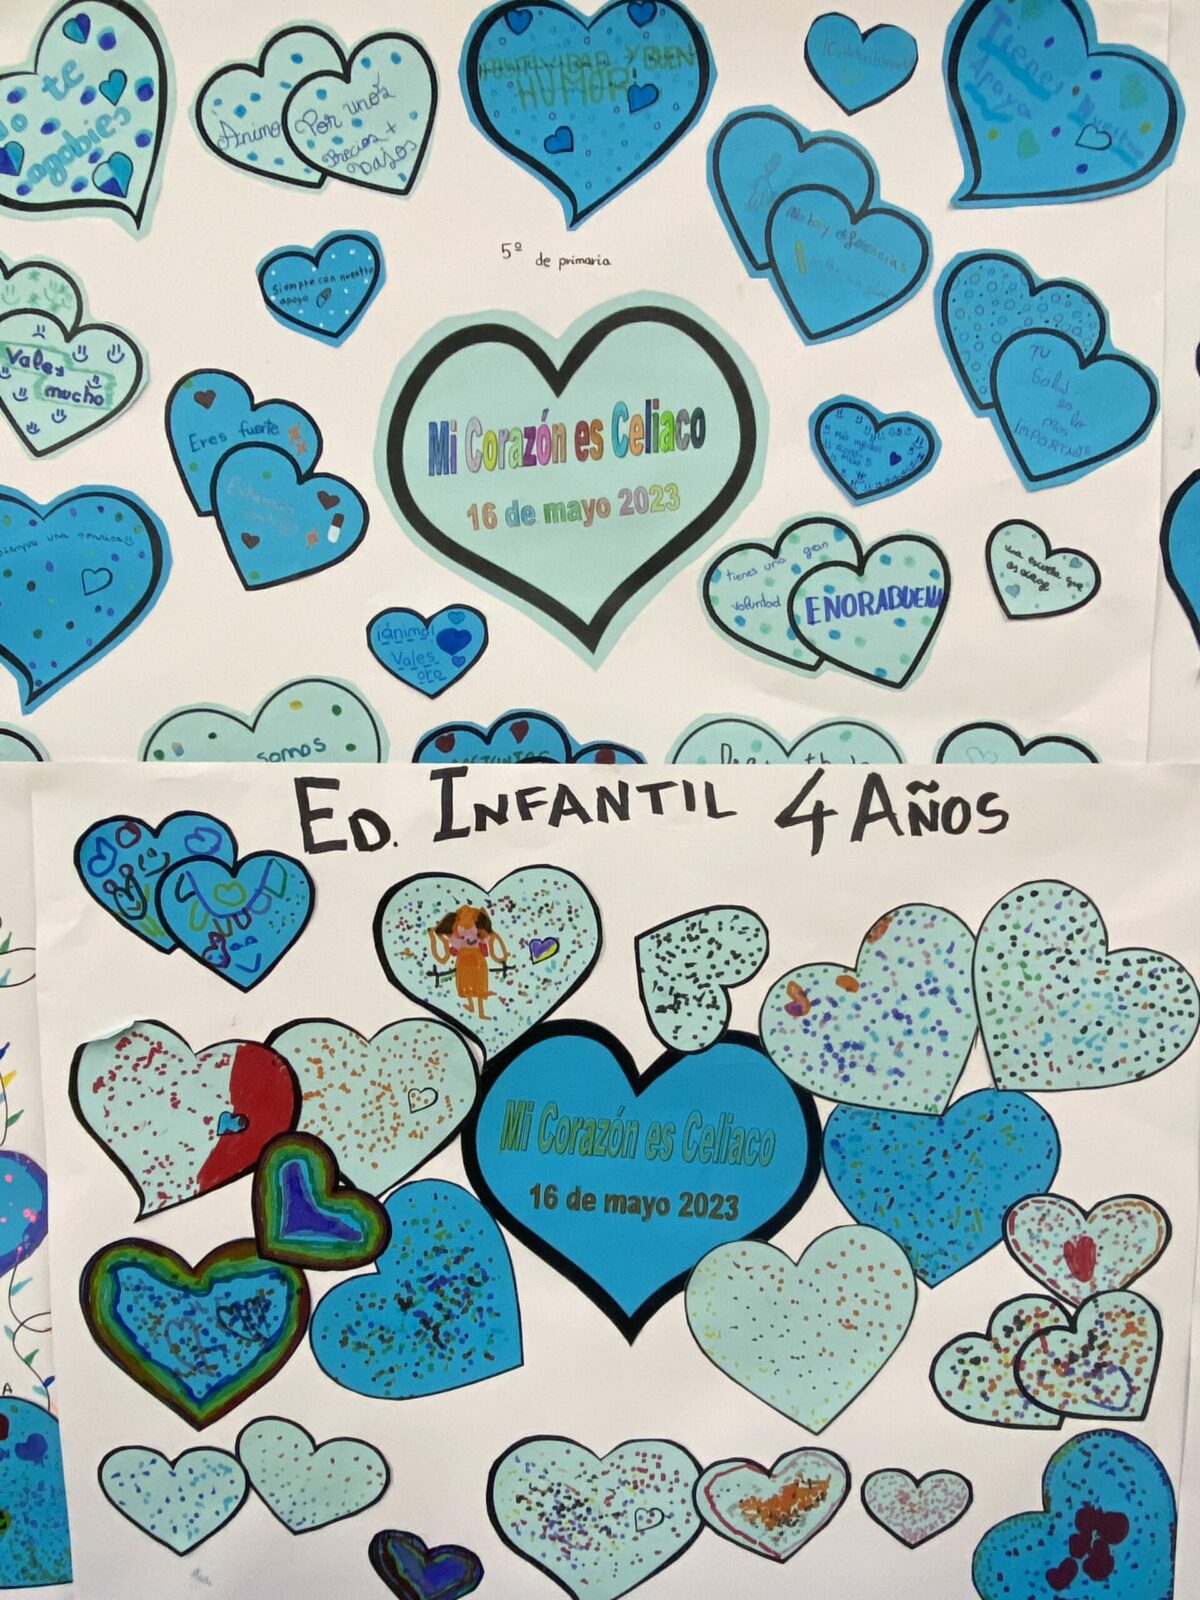 te
No
agobies
Ánimo
Por unos
Precios +
Bajos
POSITIVIDAD Y BUEN
HUMOR
Tienes Nuestro
Apoyo
No hay diferencias
5º de primaria
Siempre con nuestro
apoyo
Vales
mucho
Eres fuerte
Estamos
contigo
Mi Corazón es Celiaco
16 de mayo 2023
TU
Salud
es lo
mas
IMPORTNTE
tienes una gran
voluntad
ENORABUENA
una escuela que
os acoge
siempre una sonrisa
¡ánimo!
Vales
oro
somos
ED. INFANTIL 4 AÑOS
Mi Corazón es Celiaco
16 de mayo 2023